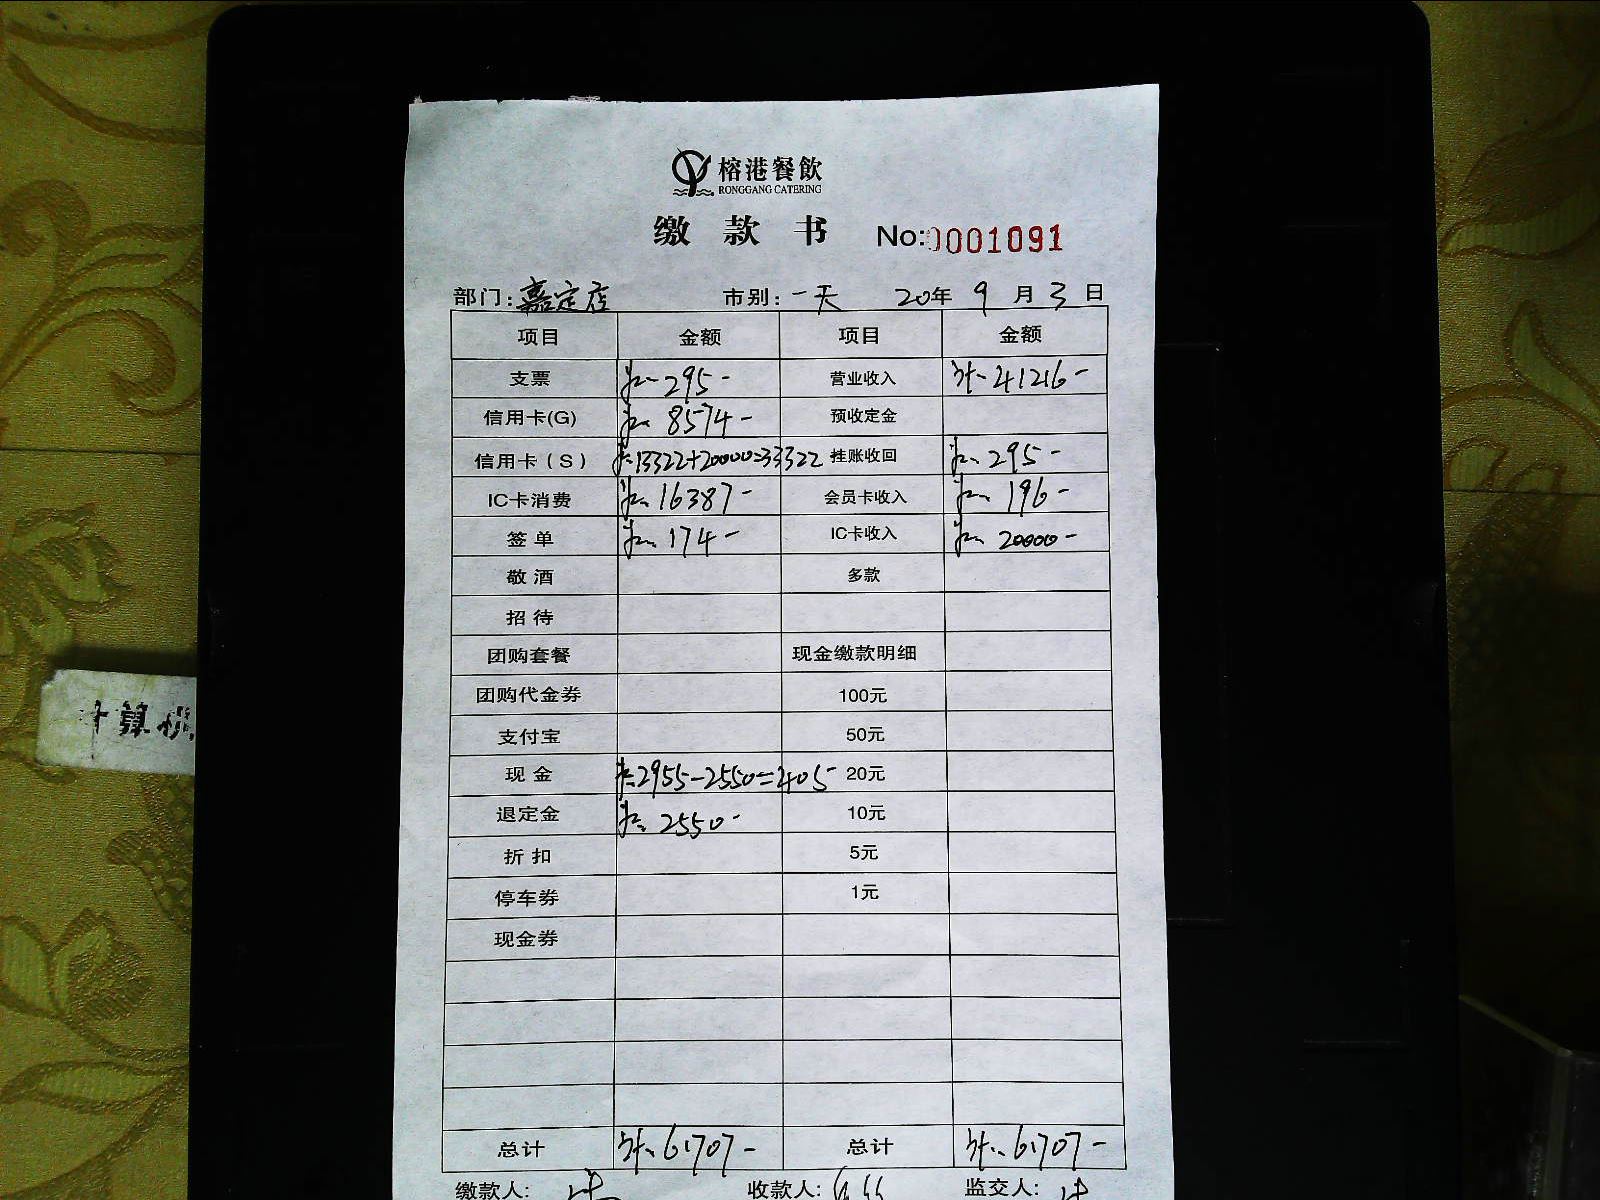 榕港餐飲
RONGGANG CATERING
缴 款 书 No:0001091
部门:嘉定店 市别:一天 20年 9月 3日
项目 金额 项目 金额
支票 295- 营业收入 41216-
信用卡(G) 8574- 预收定金
信用卡(S) 13322+20000=33322 挂账收回 295-
IC卡消费 16387- 会员卡收入 196-
签单 174- IC卡收入 20000-
敬酒 多款
招待
团购套餐 现金缴款明细
团购代金券 100元
支付宝 50元
现金 2955-2550=405- 20元
退定金 2550- 10元
折扣 5元
停车券 1元
现金券
总计 61707- 总计 61707-
缴款人: 收款人: 监交人:
计算机